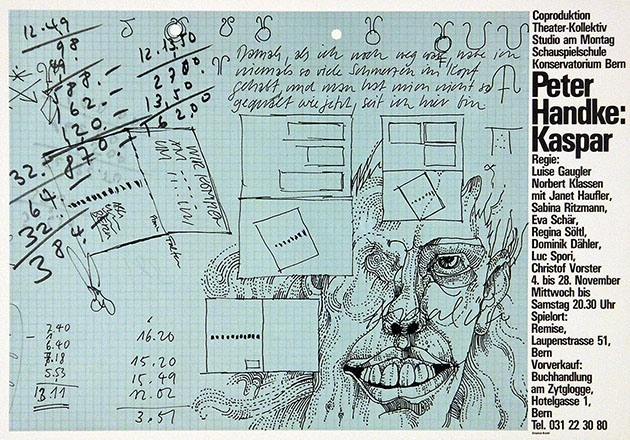 Coproduktion
Theater-Kollektiv
Studio am Montag
Schauspielschule
Konservatorium Bern
Peter
Handke:
Kaspar
Regie:
Luise Gaugler
Norbert Klassen
mit Janet Haufler,
Sabina Ritzmann,
Eva Schär,
Regina Söltl,
Dominik Dähler,
Luc Spori,
Christof Vorster
4. bis 28. November
Mittwoch bis
Samstag 20.30 Uhr
Spielort:
Remise,
Laupenstrasse 51,
Bern
Vorverkauf:
Buchhandlung
am Zytglogge,
Hotelgasse 1,
Bern
Tel. 031 22 30 80
Damals, als ich noch weg war, habe ich
niemals so viele Schmerzen im Kopf
gehabt, und man hat mich nicht so
gequält wie jetzt, seit ich hier bin
12.49
98.
588.-
162.-
120.-
870.-
32.
64.
32.
384.
12.1350
2700
13.50.
162.00
2.40
6.40
7.18
5.53
B 11
16.20
15.20
15.49
12.02
3.51